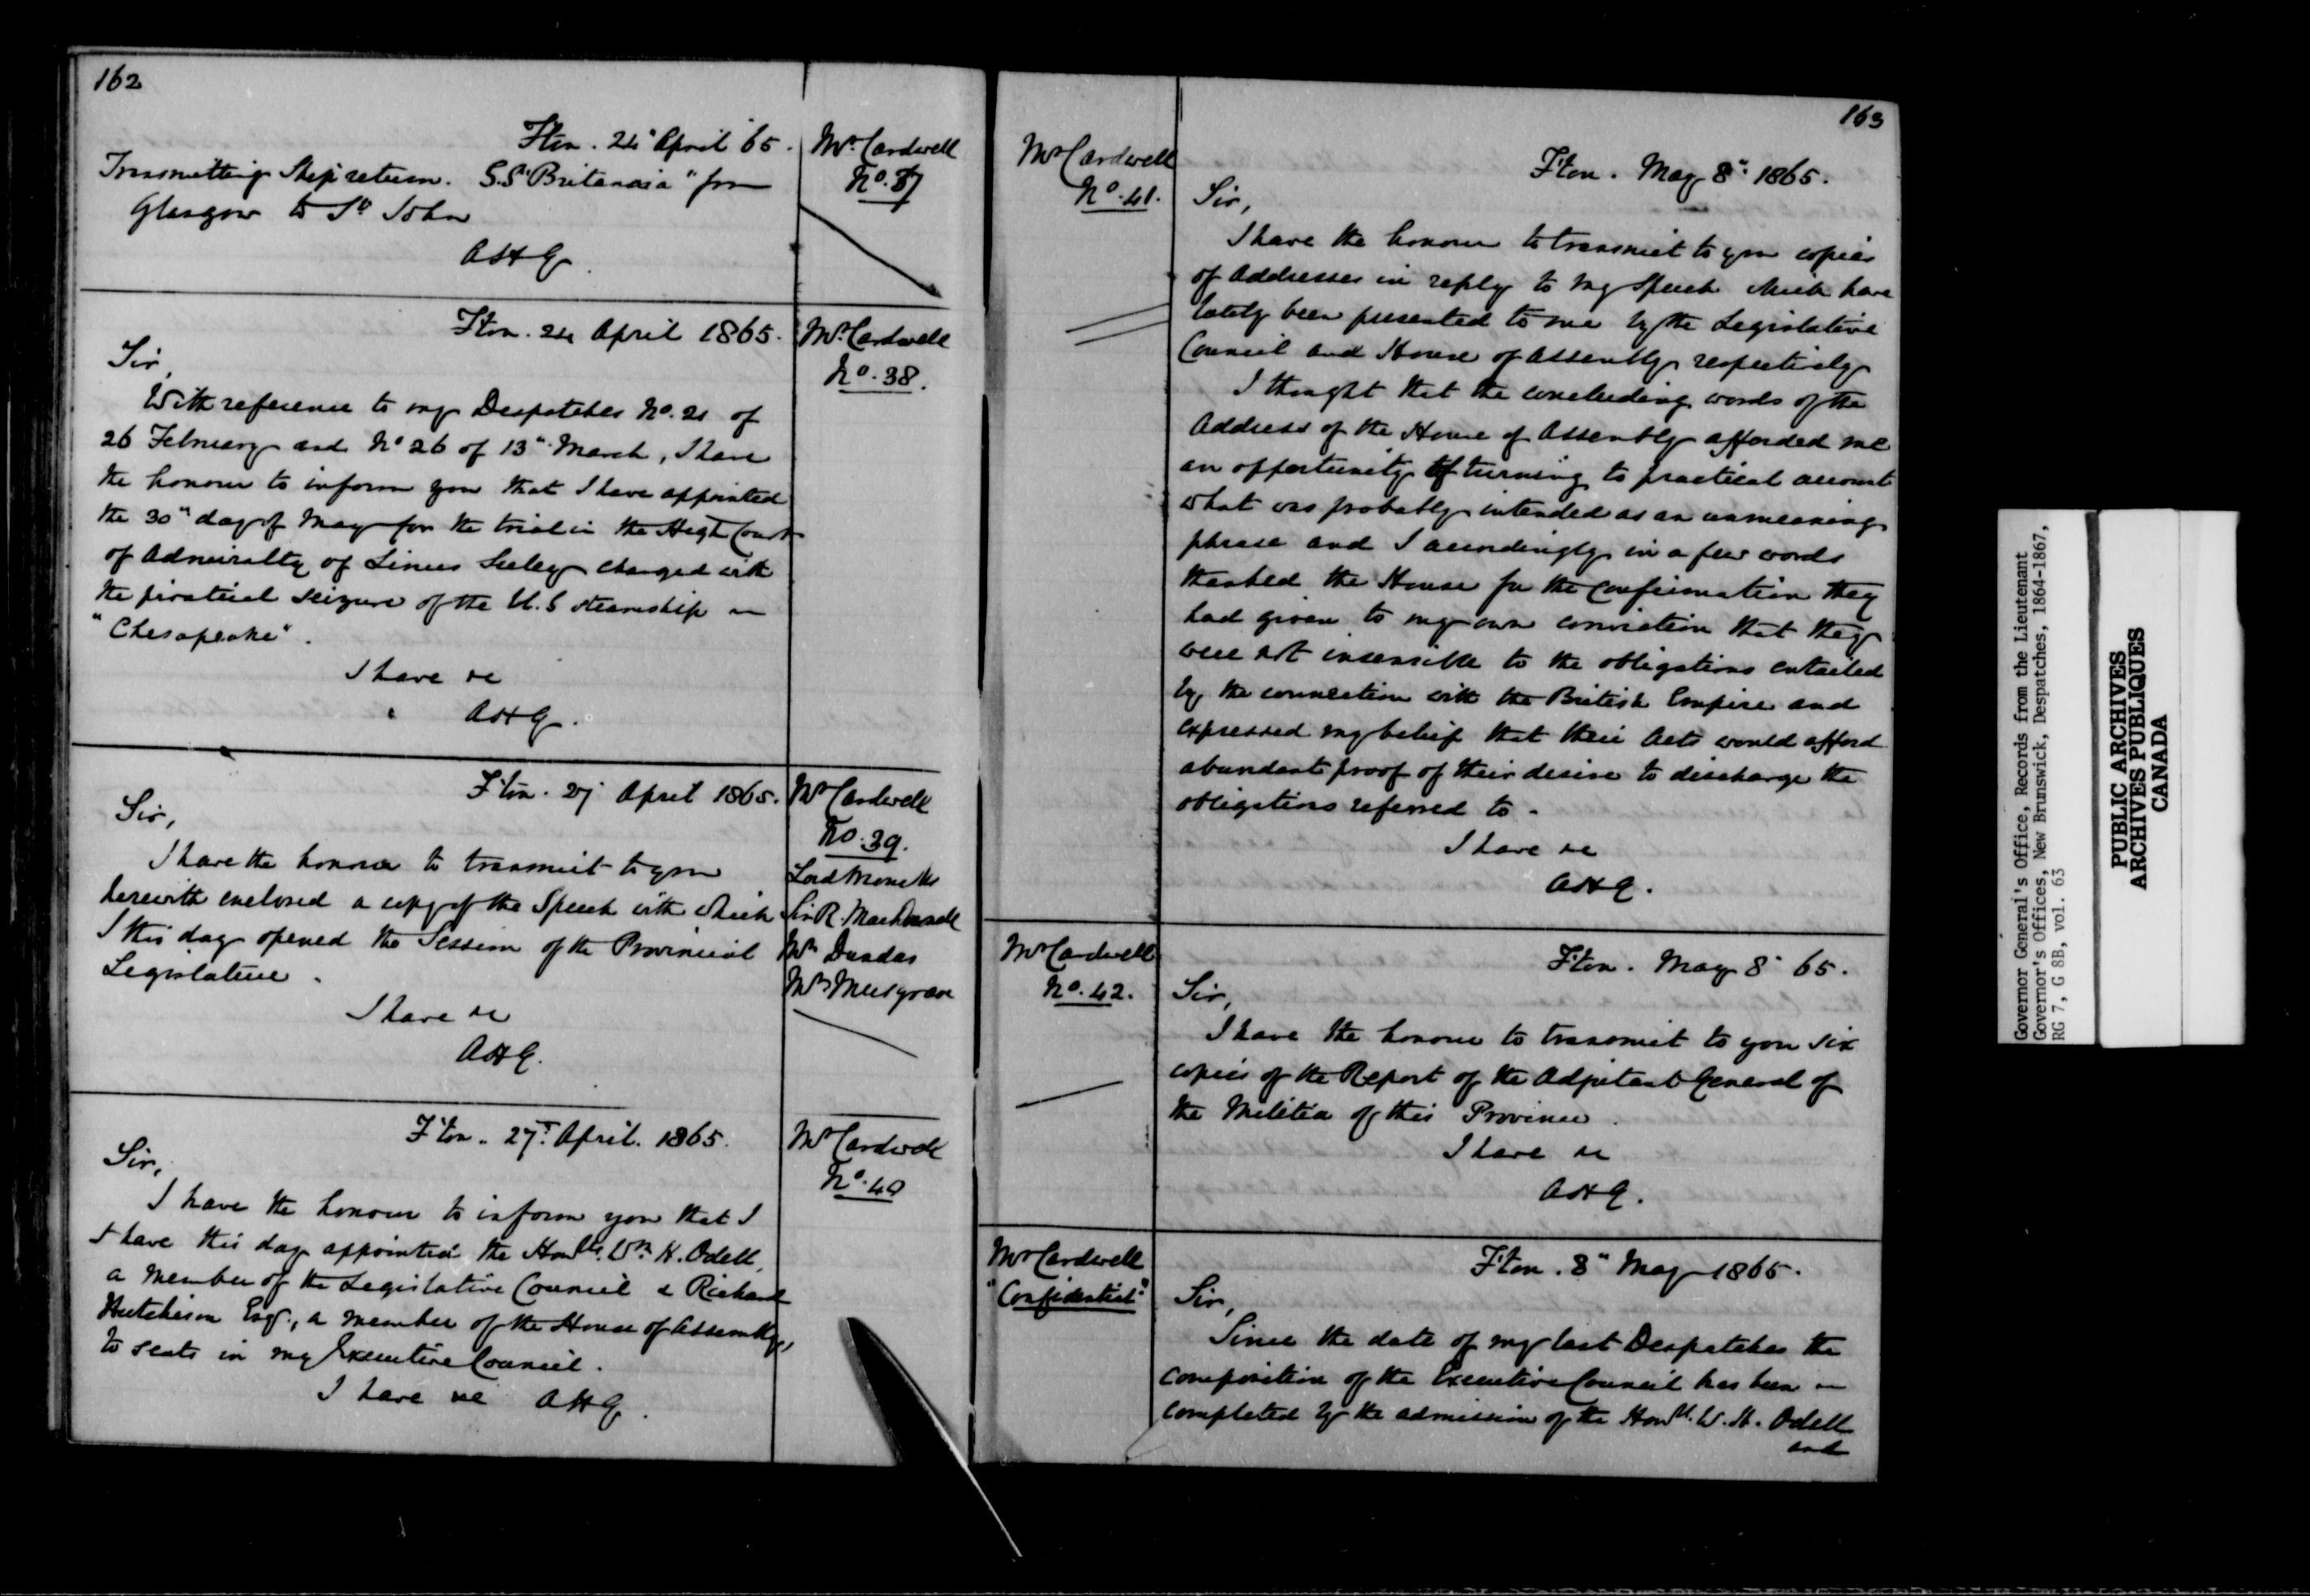 162
Fton. 24" April 65.
Mr. Cardwell
No. 37
Transmitting Ship return. S.S "Britannia" from
Glasgow to St John
AHG.
Fton. 24 April 1865.
Mr. Cardwell
No. 38.
Sir,
With reference to my Despatches No. 21 of
26 February and No 26 of 13" March, I have
the honour to inform you that I have appointed
the 30" day of May for the trial in the High Court
of Admiralty of Linus Seeley charged with
the piratical seizure of the U.S steamship
"Chesapeake".
I have &c
AHG.
F'ton. 27 April 1865.
Mr Cardwell
No. 39.
Lord Monck
Sir R. MacDonnell
Mr Dundas
Mr Musgrave
Sir,
I have the honour to transmit to you
herewith enclosed a copy of the Speech with which
I this day opened the Session of the Provincial
Legislature.
I have &c
AHG.
F'ton. 27" April. 1865.
Mr Cardwell
No. 40
Sir,
I have the honour to inform you that I
have this day appointed the Honble. Wm. H. Odell,
a member of the Legislative Council & Richard
Hutchison Esqr., a member of the House of Assembly,
to seats in my Executive Council.
I have &c AHG.
163
Mr Cardwell
No. 41.
F'ton. May 8" 1865.
Sir,
I have the honour to transmit to you copies
of Addresses in reply to my Speech which have
lately been presented to me by the Legislative
Council and House of Assembly respectively
I thought that the concluding words of the
Address of the House of Assembly afforded me
an opportunity of turning to practical account
what was probably intended as an unmeaning
phrase and I accordingly in a few words
thanked the House for the confirmation they
had given to my own conviction that they
were not insensible to the obligations entailed
by the connection with the British Empire and
expressed my belief that their Acts would afford
abundant proof of their desire to discharge the
obligations referred to -
I have &c
AHG.
Mr Cardwell
No. 42.
F'ton. May 8" 65.
Sir,
I have the honour to transmit to you six
copies of the Report of the Adjutant General of
the Militia of this Province.
I have &c
AHG.
Mr Cardwell
"Confidential"
F'ton. 8" May 1865.
Sir,
Since the date of my last Despatches the
composition of the Executive Council has been
completed by the admission of the Honbl. W. H. Odell
and
Governor General's Office, Records from the Lieutenant
Governor's Offices, New Brunswick, Despatches, 1864-1867,
RG 7, G 8B, vol. 63
PUBLIC ARCHIVES
ARCHIVES PUBLIQUES
CANADA